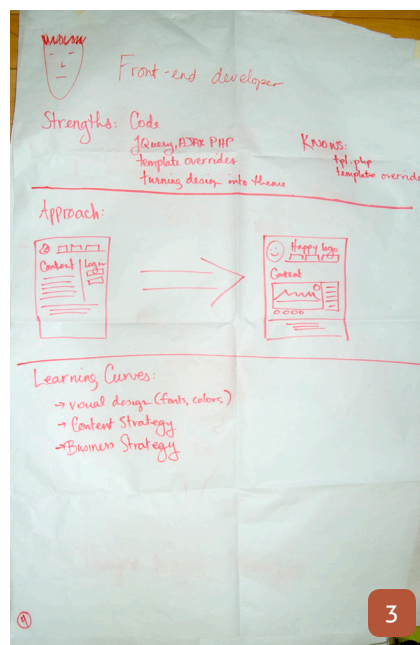 Front-end developer
Strengths: Code
jQuery, AJAX PHP
template overrides
turning design into theme
Knows:
tpl.php
template override
Approach:
Content
Login
Happy logo
Content
Learning Curves:
→ Visual design (fonts, colors)
→ Content Strategy
→ Business Strategy
4
3